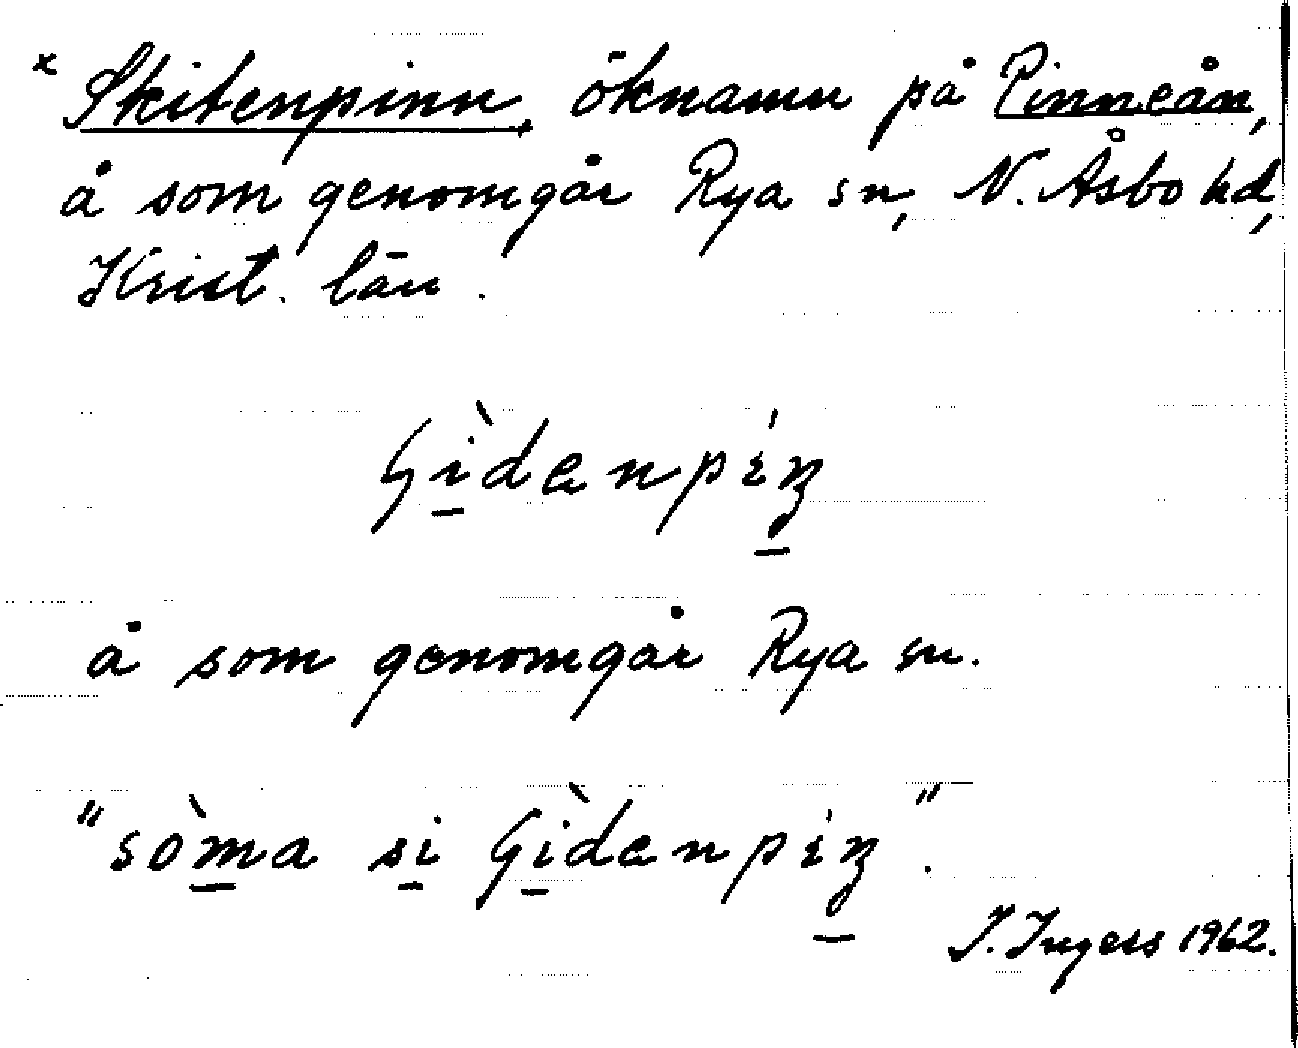 x Skitenpinn, öknamn på Pinneån,
å som genomgår Rya sn, N. Åsbo hd,
Krist. län.
å som genomgår Rya sn.
J. Ingers 1962.